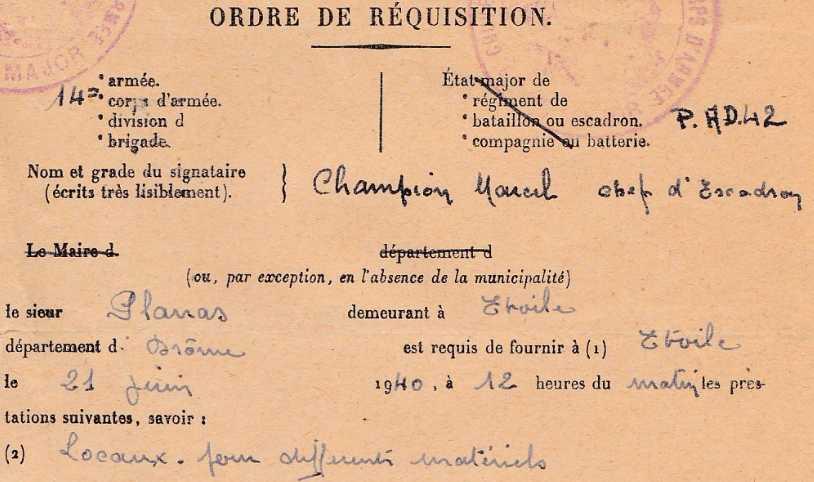 ORDRE DE RÉQUISITION.
MAJOR
D'ARMÉE
14e
armée.
corps d'armée.
division d
brigade.
État-major de
régiment de
bataillon ou escadron.
compagnie ou batterie.
P.AD.42
Nom et grade du signataire
(écrits très lisiblement).
} Champion Marcel chef d'Escadron
Le Maire d département d
(ou, par exception, en l'absence de la municipalité)
le sieur Planas demeurant à Etoile
département d Drôme est requis de fournir à (1) Etoile
le 21 juin 1940, à 12 heures du matin les pres-
tations suivantes, savoir :
(2) Locaux. pour différents matériels